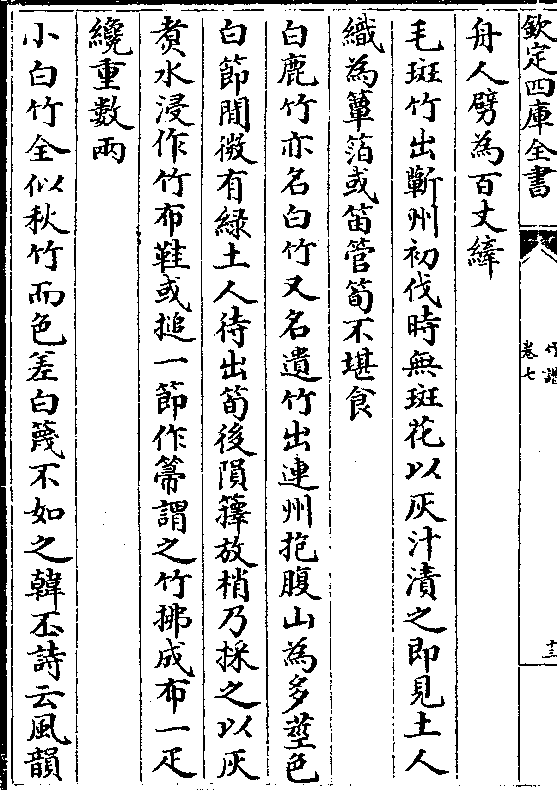 欽定四庫全書
竹譜
卷七
十三
舟人劈為百丈縴
毛斑竹出蘄州初伐時無斑花以灰汁漬之即見土人
織為簟箔或笛管筍不堪食
白鹿竹亦名白竹又名遺竹出連州抱腹山為多莖色
白節間微有緑土人待出筍後隕籜放梢乃採之以灰
煑水浸作竹布鞋或搥一節作箒謂之竹拂成布一疋
纔重數兩
小白竹全似秋竹而色差白篾不如之韓丕詩云風韻